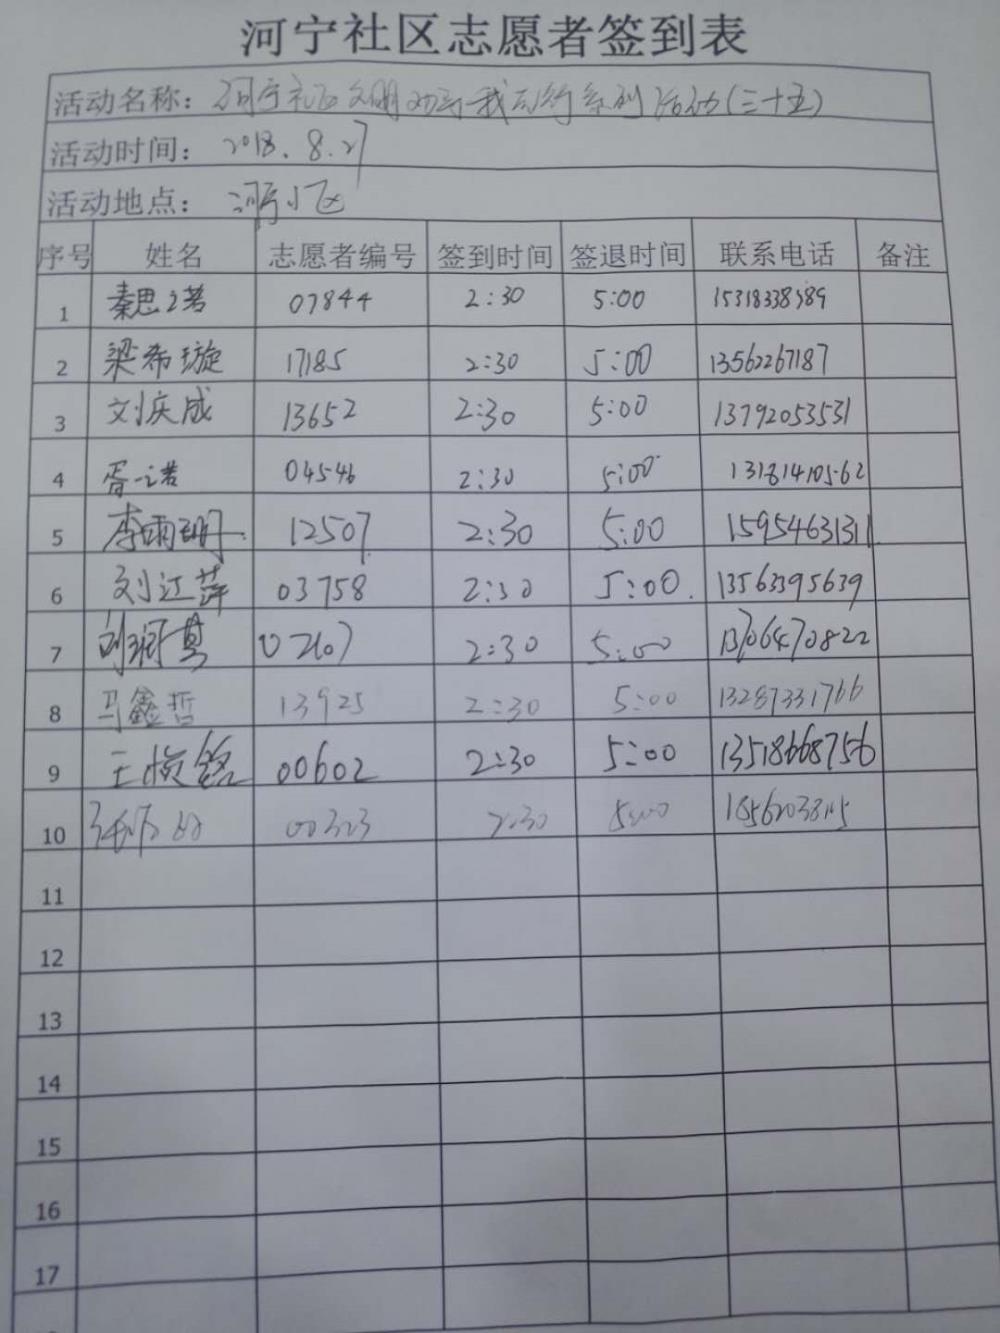 河宁社区志愿者签到表
活动名称: 河宁社区文明劝导我先行系列活动(三十五)
活动时间: 2018.8.27
活动地点: 河宁小区
序号 姓名 志愿者编号 签到时间 签退时间 联系电话 备注
1 秦思 07844 2:30 5:00
2 梁希璇 17185 2:30 5:00 13562267187
3 刘庆成 13652 2:30 5:00 13792053531
4 胥一诺 04546 2:30 5:00 13181410562
5 李雨 12507 2:30 5:00 15954631311
6 刘江萍 03758 2:30 5:00 13563395639
7 刘 2:30 5:00 13706470822
8 马鑫哲 13925 2:30 5:00 13287331766
9 王俊铭 00602 2:30 5:00 13518668756
10 00323 2:30 5:00
11
12
13
14
15
16
17